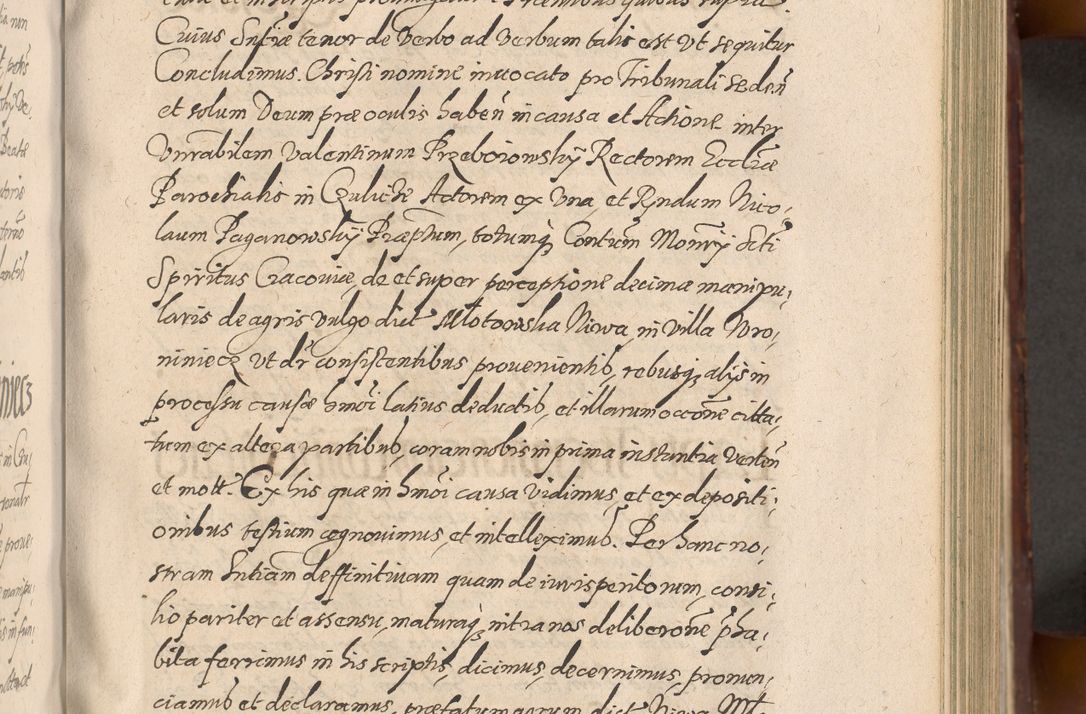 Cuius Sñtiæ tenor de Verbo ad Verbum talis est Vt sequitur
Concludimus. Christi nomine inuocato pro Tribunali sedeñ
et solum Deum præ oculis habeñ in causa et Actione inter
Vnrãbilem Valentinum Przeboiowskÿ Rectorem Ecclĩæ
Parochialis in Czulicze Actorem ex Vna, et Rñdum Nico,
laum Paganowskÿ Præp̃tum, totumq̃ Contum̃ Monrÿ Scti
Spiritus Cracouiæ, de et super perceptione decimæ manipu,
laris de agris vulgo dict Młotowska Niwa, in Villa Wro,
niniecz Vt dr̃ consistentibus prouenientib, rebusq̃ alÿs in
processu causæ hmõi latius deductib, et illarum occõne citta,
tum ex altera partibus, coram nobis in prima instantia Verteñ
et mott. Ex his quæ in hmõi causa Vidimus, et ex depositi,
onibus testium cognouimus, et intelleximus. Per hanc no,
stram Sntiam̃ deffinitiuam quam de iurisperitorum, consi,
lio pariter et assensu, maturaq̃ intra nos deliberõne p̃ha,
bita ferrimus in his scriptis, dicimus, decernimus, pronun,
ciamus et declaramus, præfatum agrum dict Niwa Mł